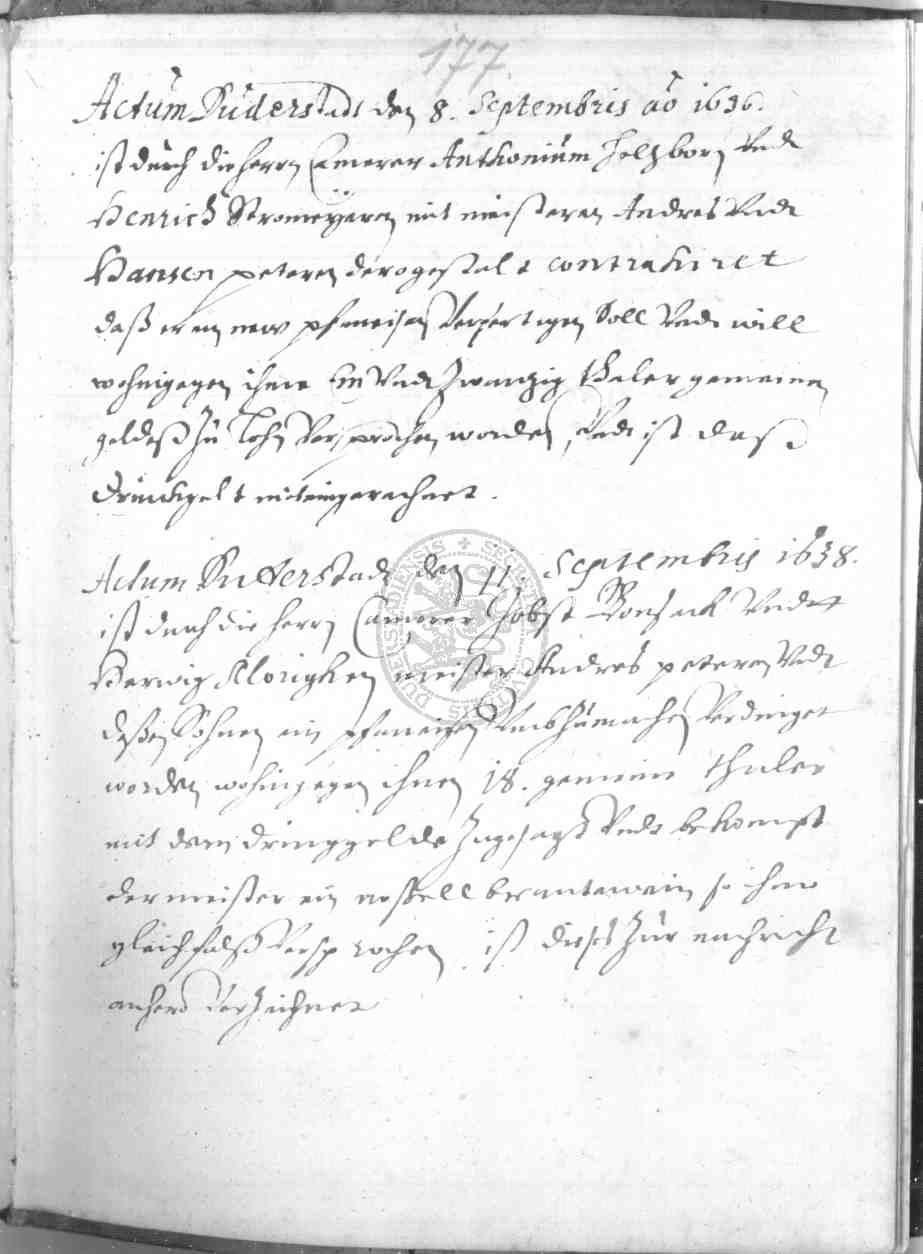 177.
Actum Duderstadt den 8. Septembris ao 1636.
ist durch die herrn Cämerer Anthonium Helzborn Undt
Henrich Stromeyeren mit meisteren Andres Undt
Hansen peteren derogestalt contrahiret
daß er ein new pfaneisen Verfertigen Soll Undt will
wohingegen ihme Ein Undt Zwanzig thaler gemeinen
geldeß Zu Lohn Versprochen worden, Undt ist daß
Drinckgelt mit eingerechnet.
Actum Duderstadt den 11. Septembris 1638.
ist durch die herrn Camerer Jobst Undt
Herwig meister Andres peteren Undt
deßen Sohnen ein pfaneisen Umbzumachen Verdinget
worden, wohingegen ihnen 18. gemeine thaler
mit dem Dringgelde Zugesagt Undt bekompt
der meister ein brantewein so ihme
gleichfalß Versprochen, ist dieses Zur nachricht
anhero Verzeichnet